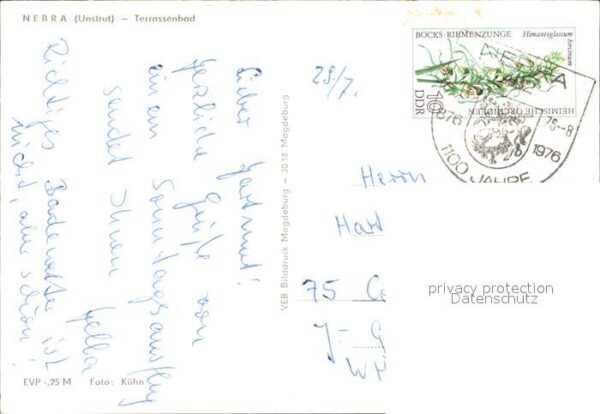 NEBRA (Unstrut) — Terrassenbad
Lieber Hartmut!
Herzliche Grüße von
einem Sonntagsausflug
sendet Ihnen Hella
Richtiges Badewetter ist
nicht, aber schön!
EVP -,25 M Foto: Kühn
VEB Bilddruck Magdeburg — 301E Magdeburg
28/7.
BOCKS-RIEMENZUNGE Himantoglossum hircinum
HEIMISCHE ORCHIDEEN
DDR 10
NEBRA
876
76--8
1976
1100 JAHRE
Herrn
Hart
75 Co
J.-G
WK
privacy protection
Datenschutz